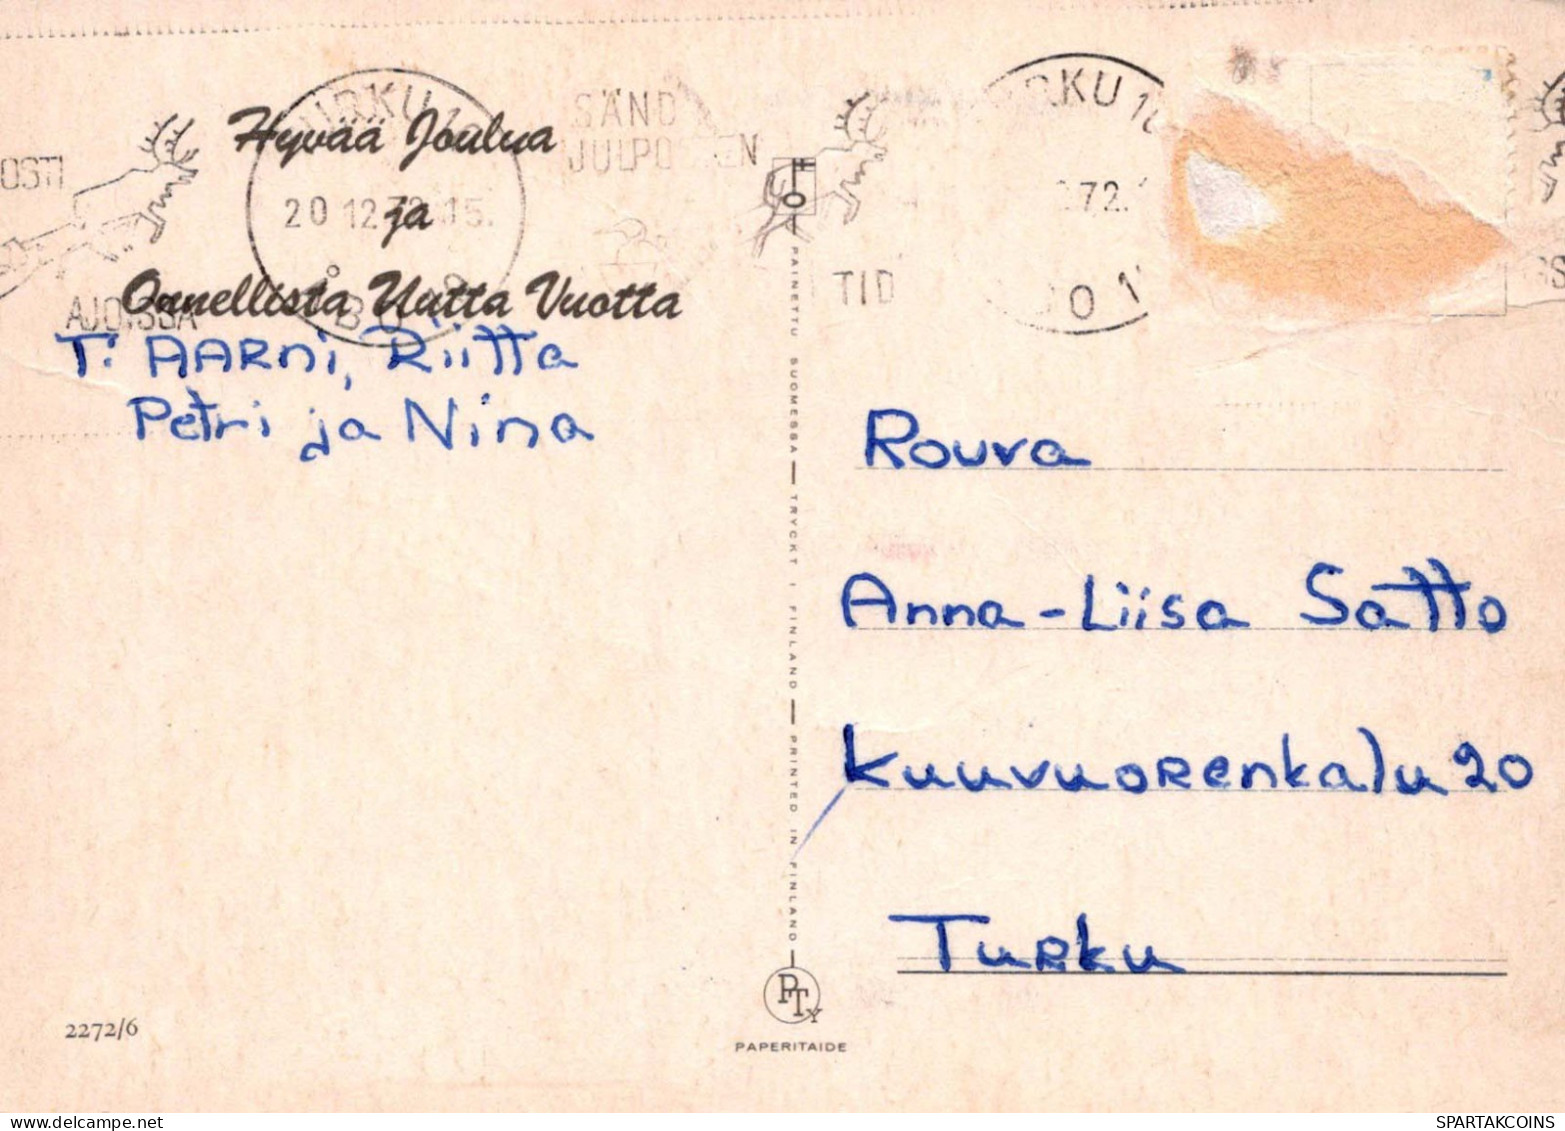 Hyvää Joulua
ja
Onnellista Uutta Vuotta
T: AARni, Riitta
Petri ja Nina
TURKU 10
20.12.72.15.
ÅBO
SÄND
JULPOSTEN
TID
OSTI
AJOISSA
RKU 10
72.
BO 1
PAINETTU SUOMESSA — TRYCKT I FINLAND — PRINTED IN FINLAND
Rouva
Anna-Liisa Satto
Kuuvuorenkatu 20
Turku
2272/6
PTy
PAPERITAIDE
SPARTAKCOINS